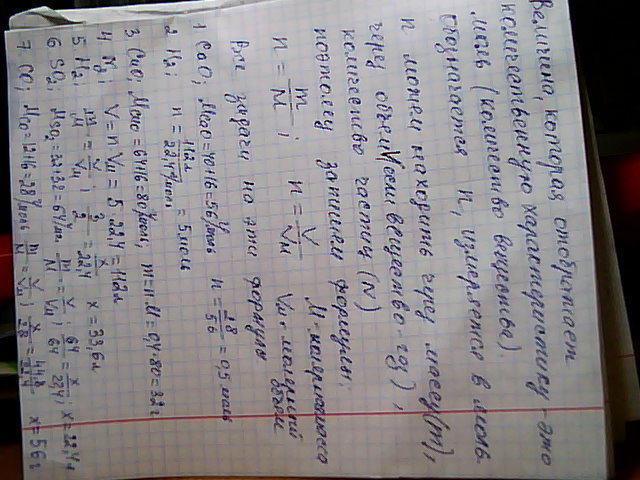 Величина, которая отображает
количественную характеристику - это
моль (количество вещества).
обозначается n, измеряется в моль
n можем находить через массу (m),
через объем V (если вещество - газ),
количество частиц (N)
поэтому запишем формулы:
n = m/M ; n = V/Vм M -
Vм - молярный объем
Все задачи на эти формулы
1 CaO; MCaO = 40+16 = 56 г/моль n = 28/56 = 0,5 моль
2 H2; n = 112л/22,4 л/моль = 5 моль
3 CuO; MCuO = 64+16 = 80 г/моль, m = n·M = 0,4·80 = 32г
4 N2; V = n·Vм = 5·22,4 = 112л
5 H2; m/M = V/Vм ; 3/2 = x/22,4 x = 33,6л
6 SO2; MSO2 = 32+32 = 64г/м m/M = V/Vм ; 64/64 = x/22,4 ; x = 22,4л
7 CO; MCO = 12+16 = 28г/моль m/M = V/Vм ; x/28 = 44,8/22,4 x = 56г